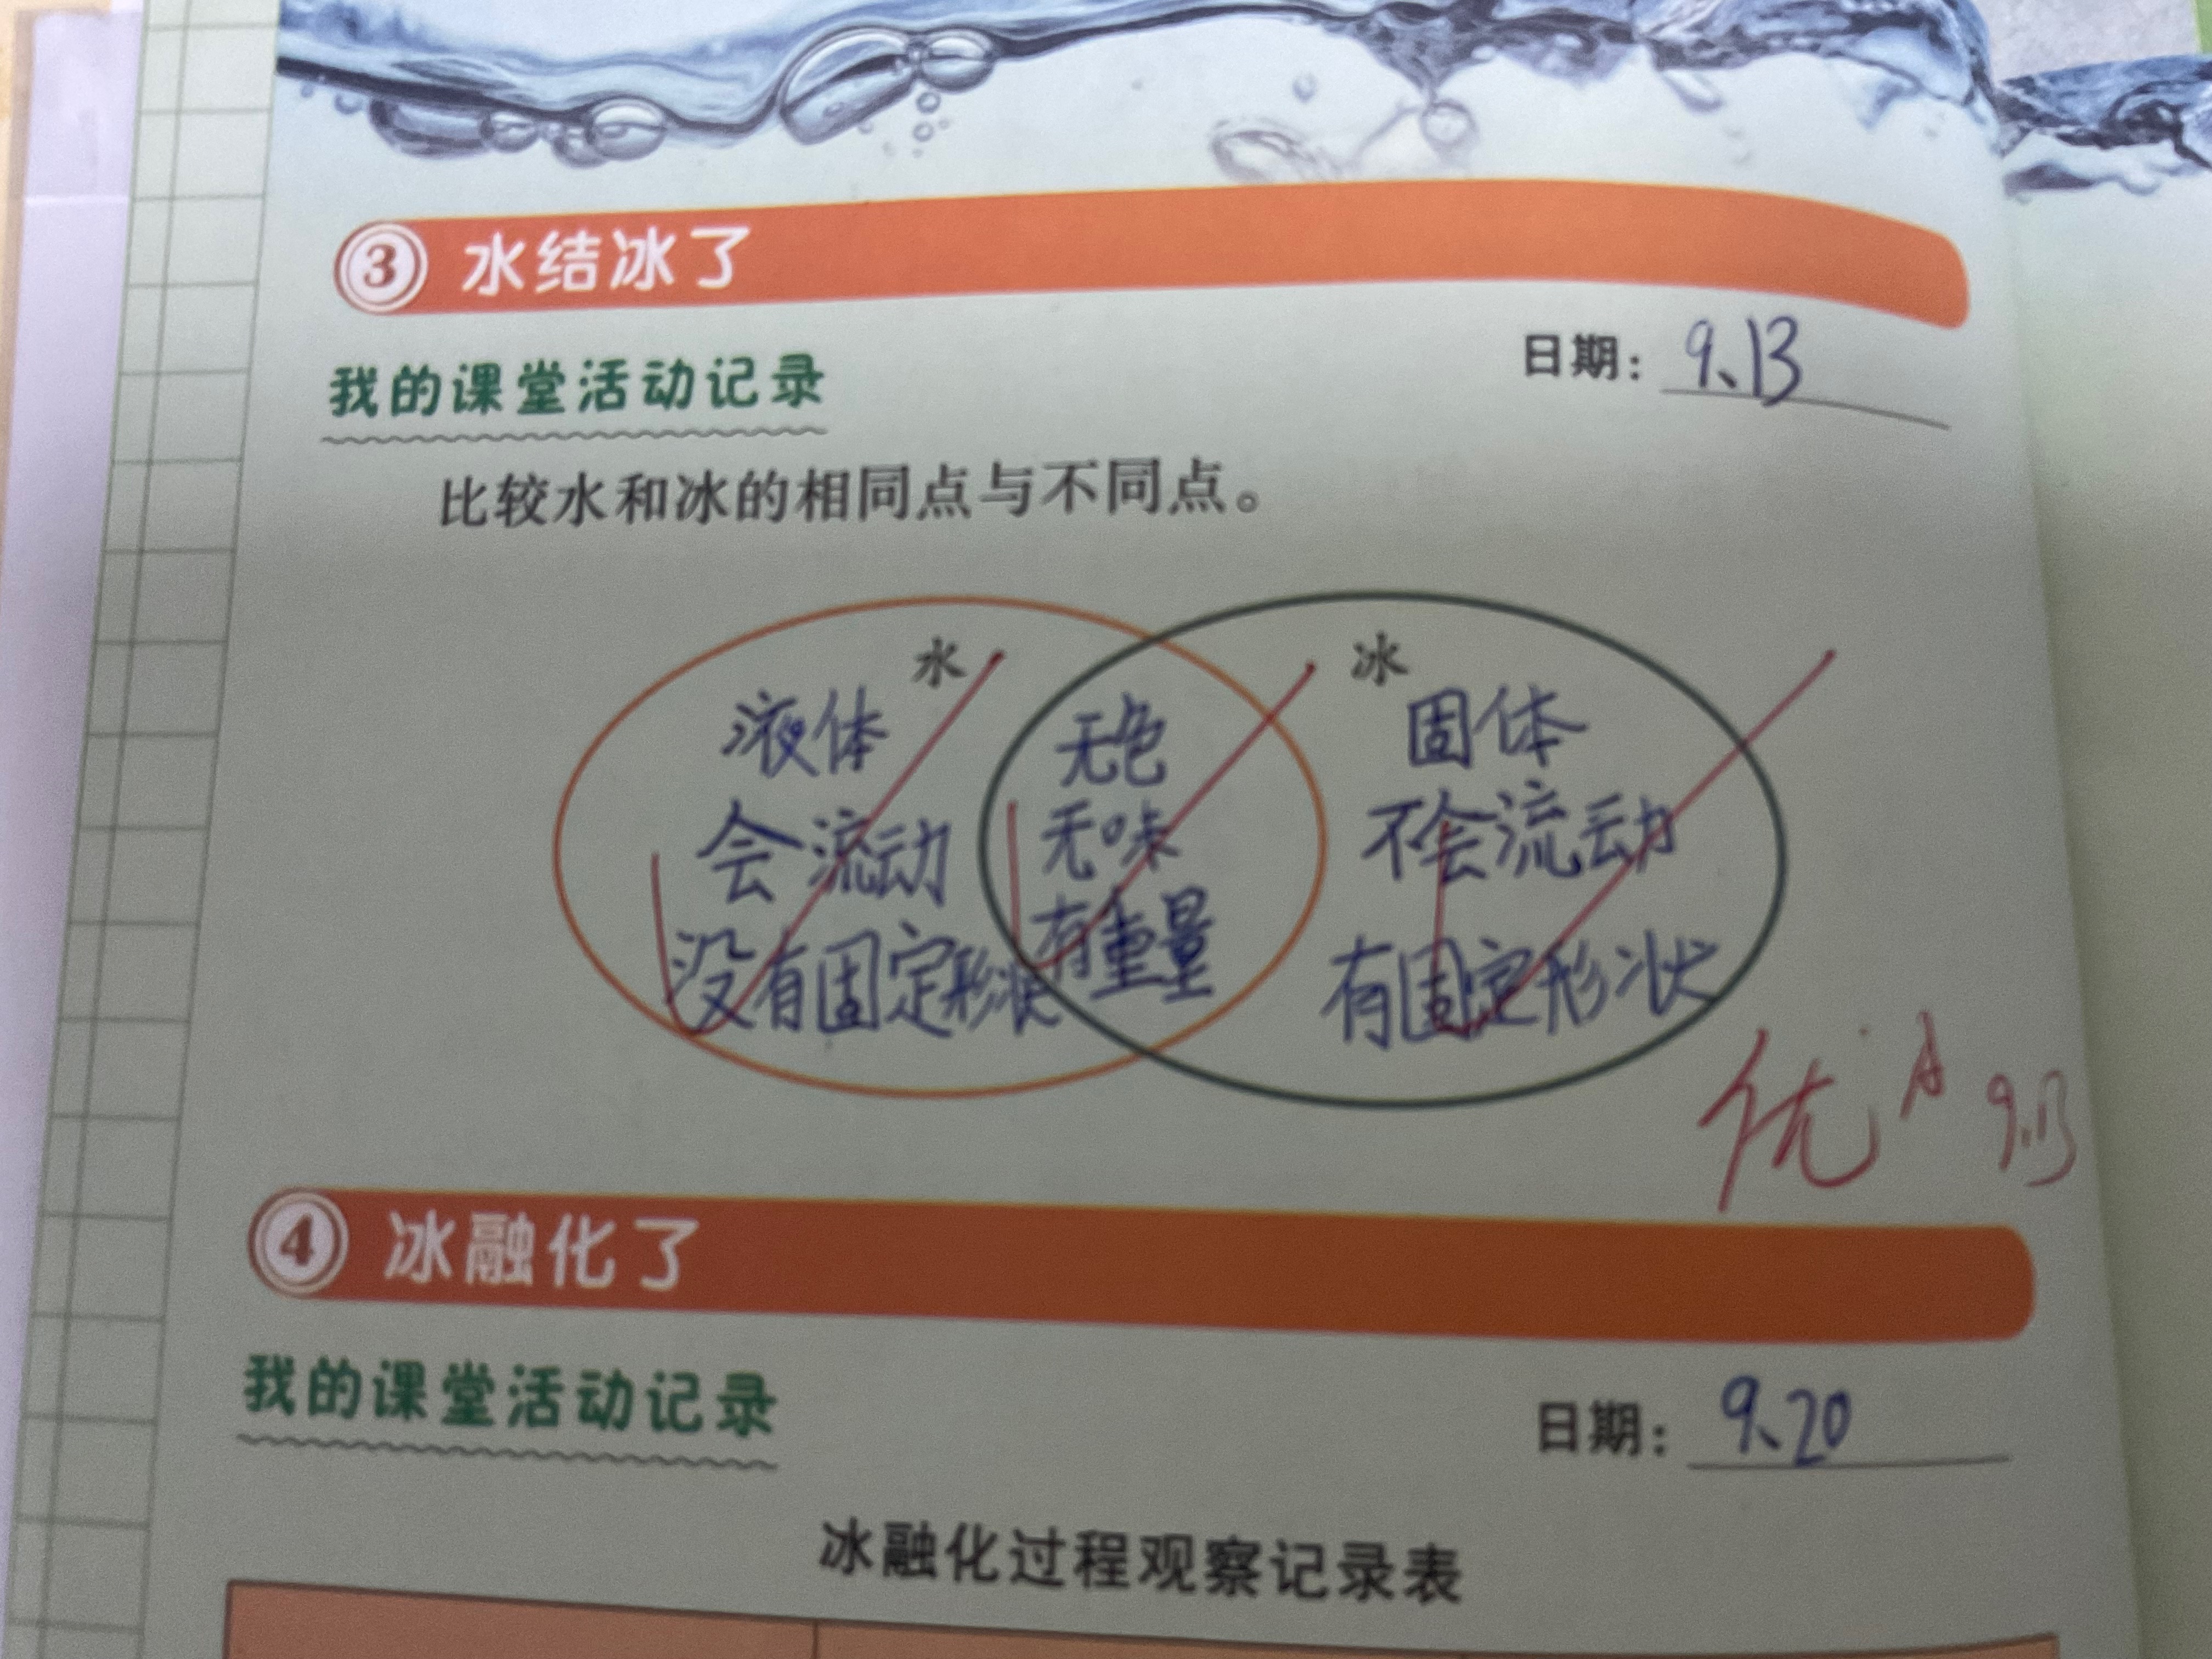 3 水结冰了
我的课堂活动记录
日期： 9、13
比较水和冰的相同点与不同点。
水
液体
会流动
没有固定形状
无色
无味
有重量
冰
固体
不会流动
有固定形状
优 A 9.13
4 冰融化了
我的课堂活动记录
日期： 9、20
冰融化过程观察记录表